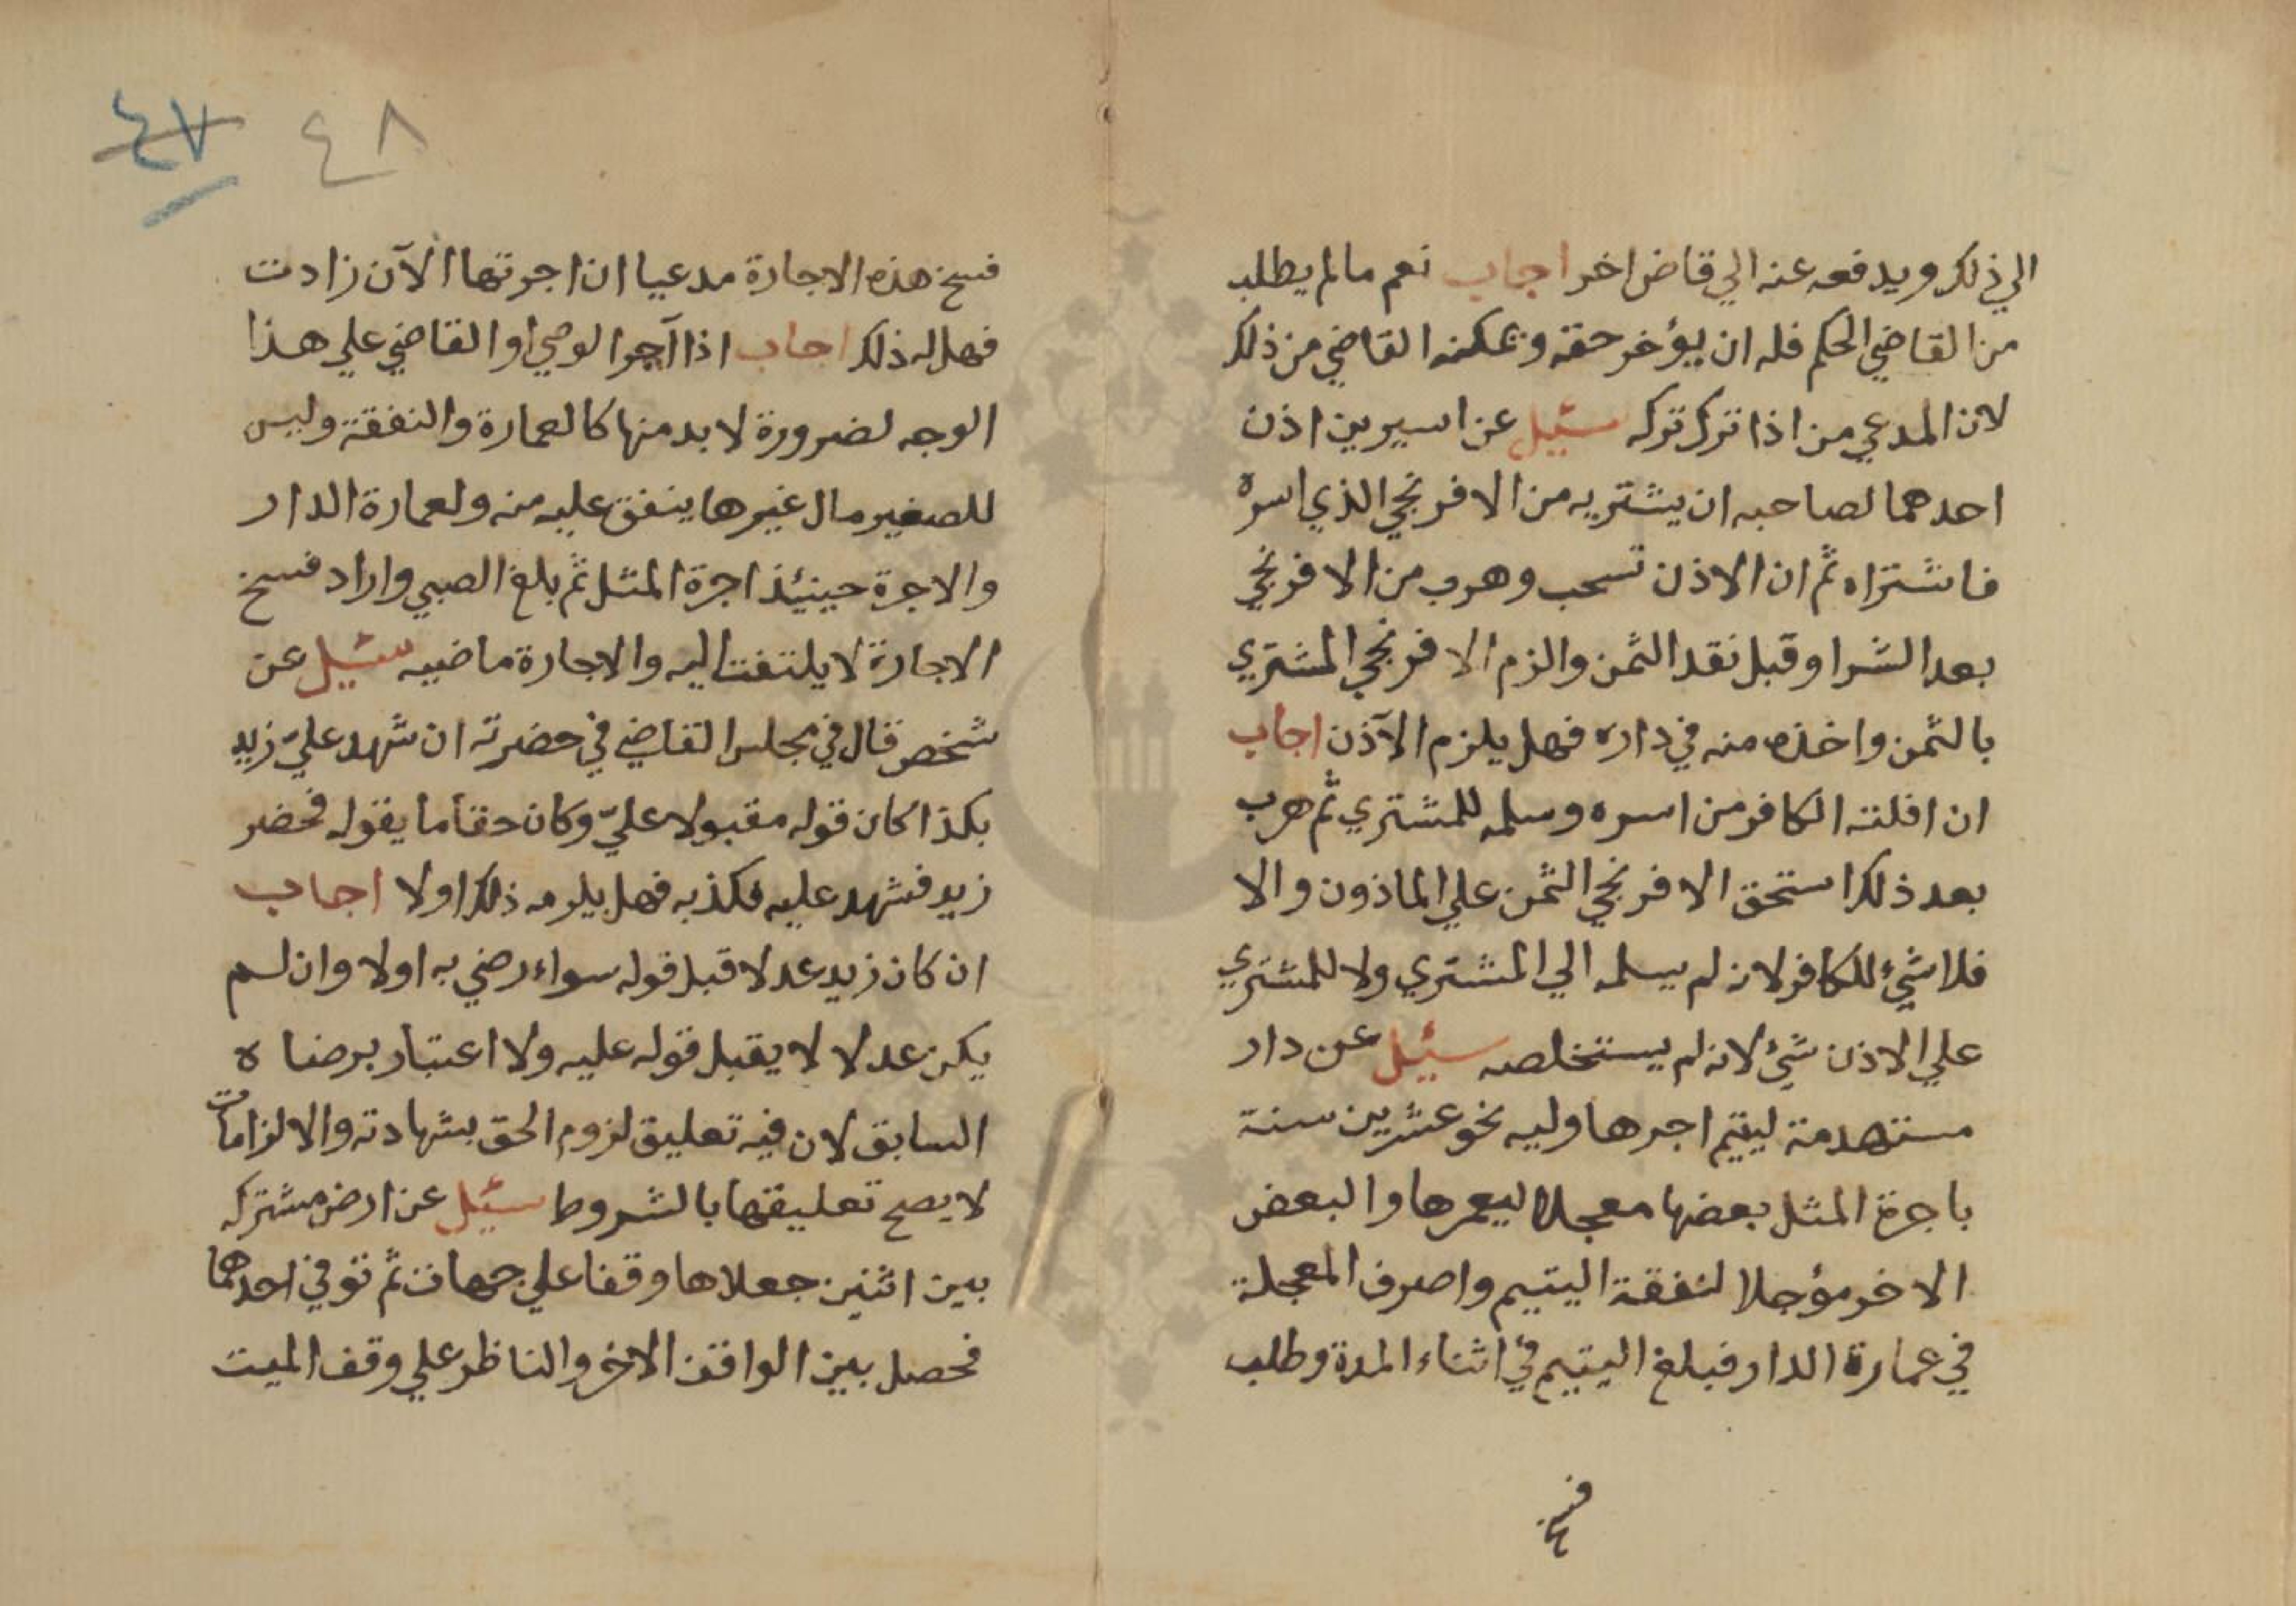 الي ذلك ويدفعه عنه الي قاض اخر اجاب نعم مالم يطلب
من القاضي الحكم فله ان يؤخر حقه ويمكنه القاضي من ذلك
لان المدعي من اذا ترك تركه سئيل عن اسيرين اذن
احدهما لصاحبه ان يشتريه من الافرنجي الذي اسره
فاشتراه ثم ان الاذن تسحب وهرب من الافرنجي
بعد الشرا وقبل نقد الثمن والزم الافرنجي المشتري
بالثمن واخذه منه في داره فهل يلزم الآذن اجاب
ان افلته الكافر من اسره وسلمه للمشتري ثم هرب
بعد ذلك استحق الافرنجي الثمن علي الماذون والا
فلا شيء للكافر لانه لم يسلمه الي المشتري ولا للمشتري
علي الاذن شيء لانه لم يستخلصه سئيل عن دار
مستهدمة ليتيم اجرها وليه نحو عشرين سنة
باجرة المثل بعضها معجلا ليعمرها والبعض
الاخر مؤجلا لنفقة اليتيم واصرف المعجلة
في عمارة الدار فبلغ اليتيم في اثناء المدة وطلب
فسخ
٤٨ ٤٧
فسخ هذه الاجارة مدعيا ان اجرتها الآن زادت
فهل له ذلك اجاب اذا آجر الوصي او القاضي علي هذا
الوجه لضرورة لا بد منها كالعمارة والنفقة وليس
للصغير مال غيرها ينفق عليه منه ولعمارة الدار
والاجرة حينيئذ اجرة المثل ثم بلغ الصبي واراد فسخ
الاجارة لا يلتفت اليه والاجارة ماضيه سئيل عن
شخص قال في مجلس القاضي في حضرته ان شهد عليّ زيد
بكذا كان قوله مقبولا عليّ وكان حقا ما يقوله فحضر
زيد فشهد عليه فكذبه فهل يلزمه ذلك اولا اجاب
ان كان زيد عدلا قبل قوله سواء رضي به اولا وان لم
يكن عدلا لا يقبل قوله عليه ولا اعتبار برضاه
السابق لان فيه تعليق لزوم الحق بشهادته والالزامات
لا يصح تعليقها بالشروط سئيل عن ارض مشتركه
بين اثنين جعلاها وقفا علي جهات ثم توفي احدهما
فحصل بين الواقف الاخر والناظر علي وقف الميت